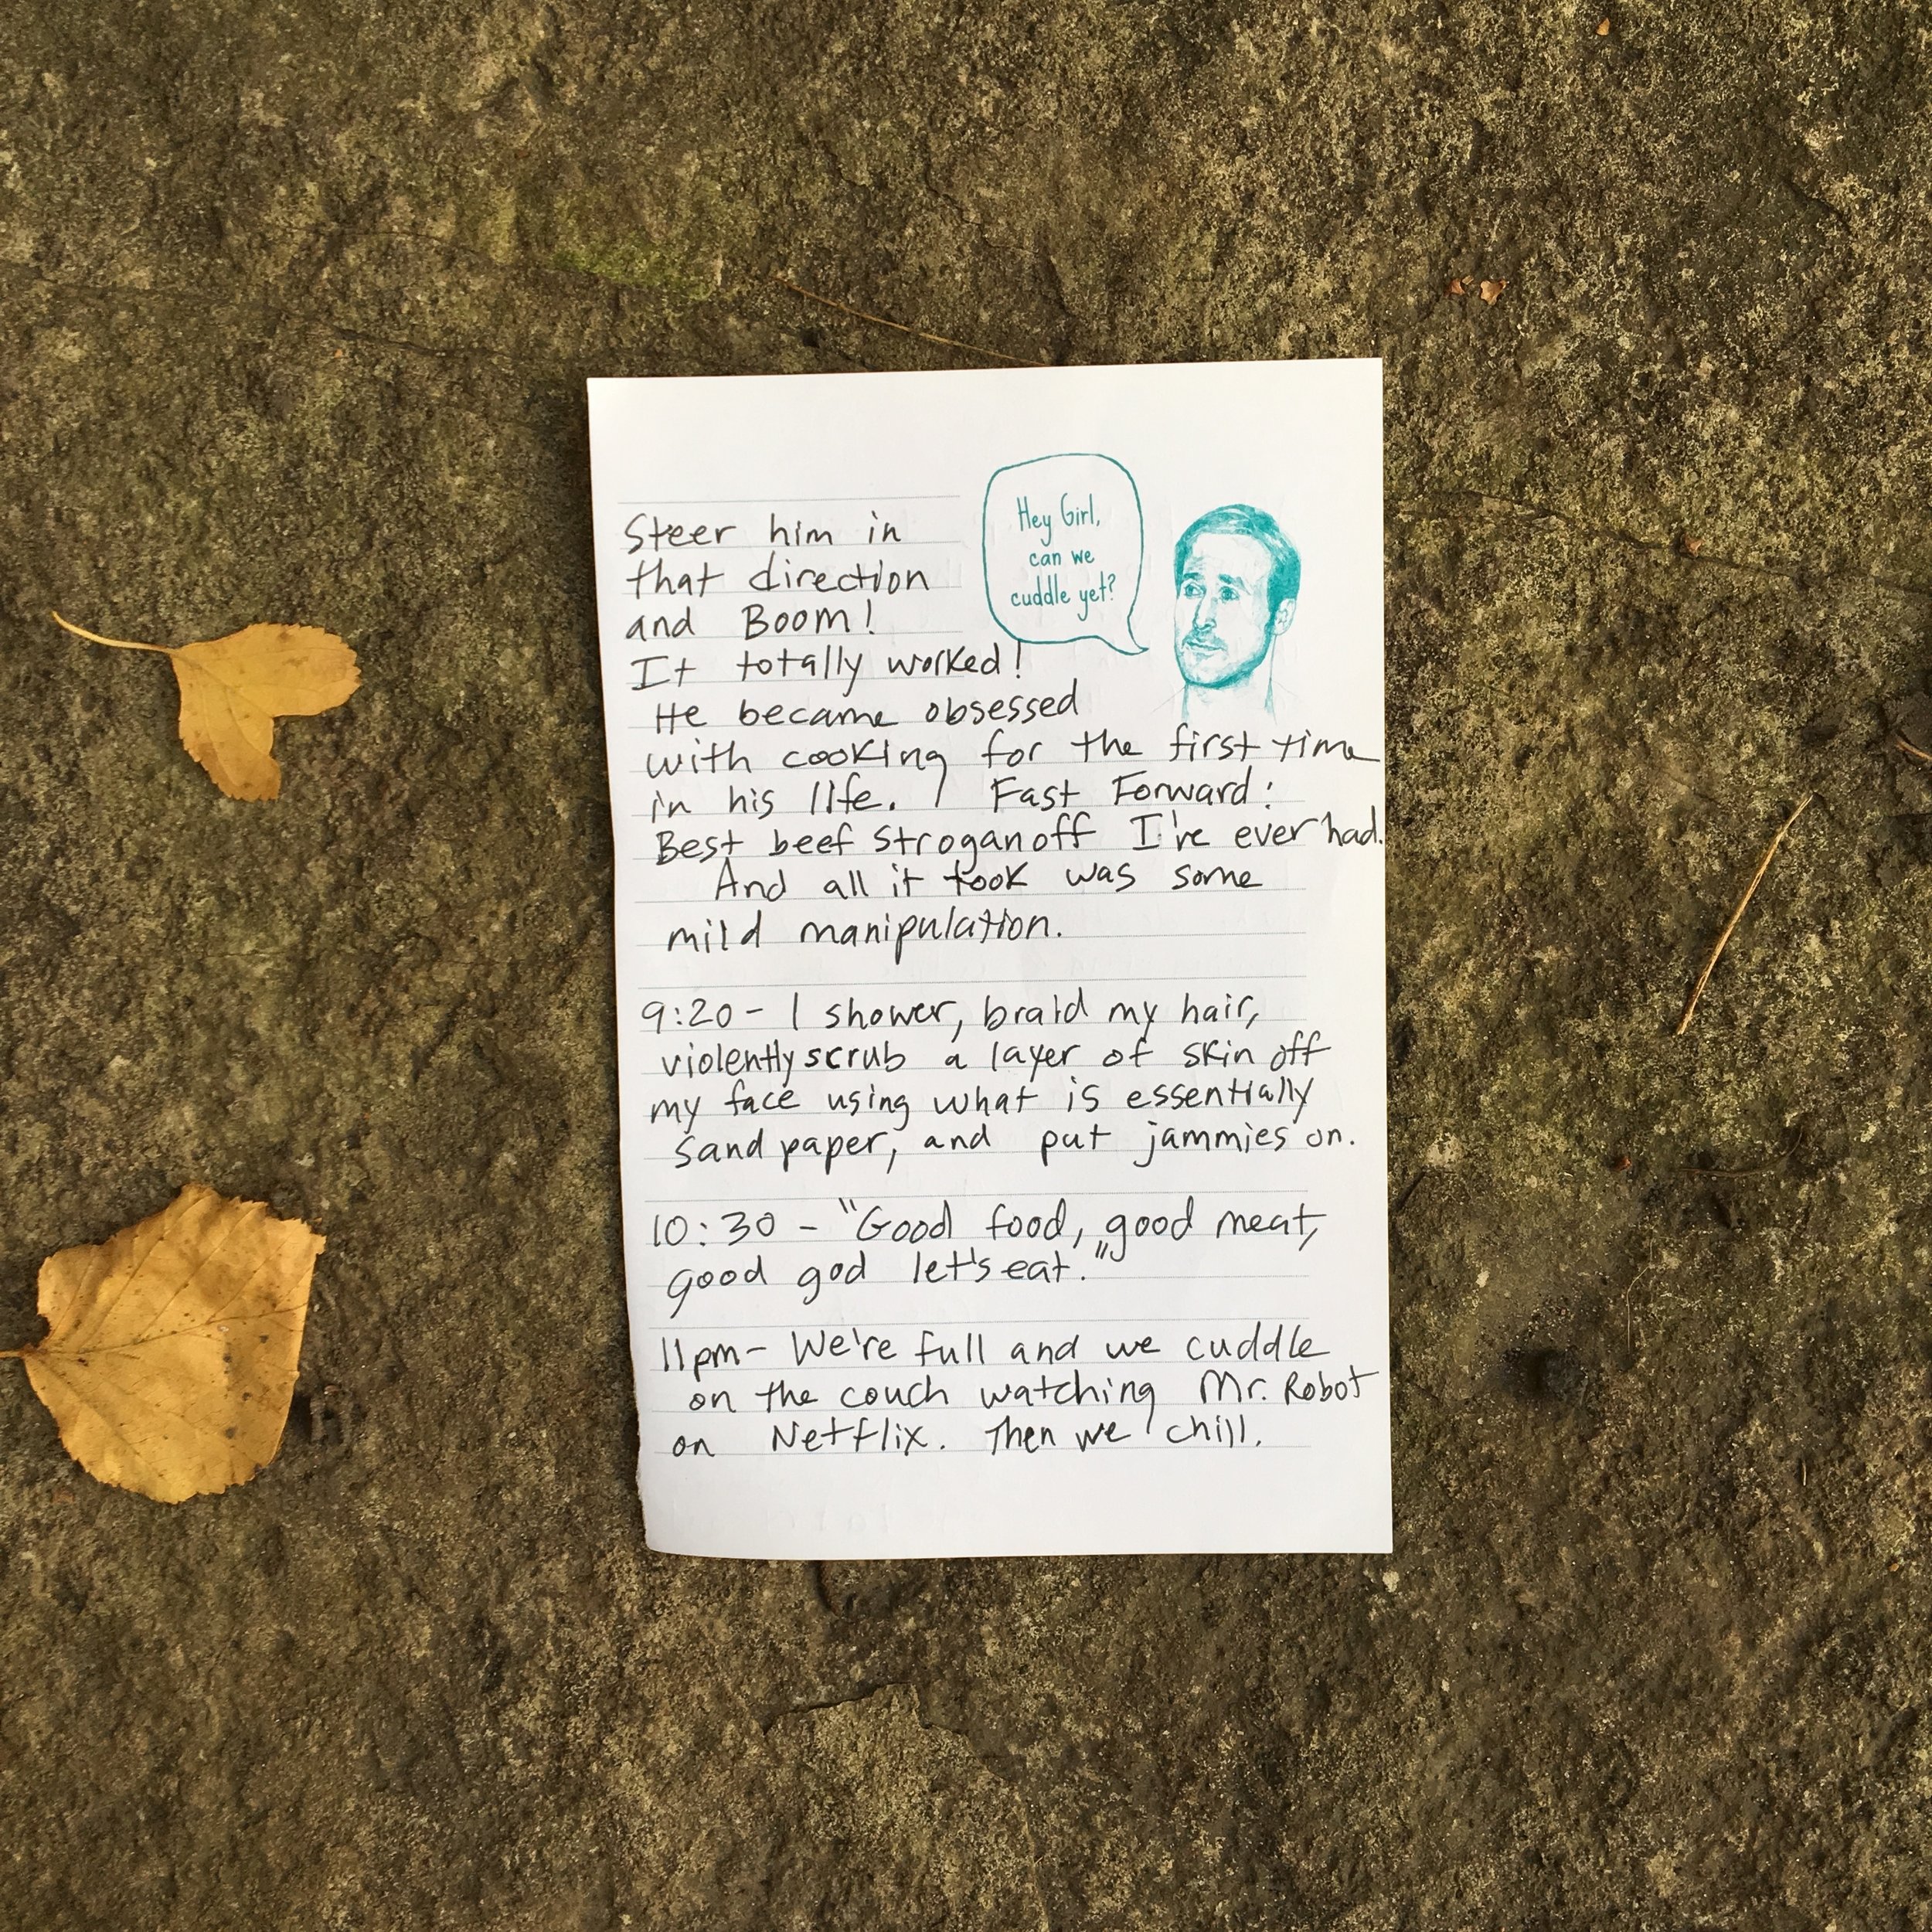 Hey Girl,
can we
cuddle yet?
Steer him in
that direction
and Boom!
It totally worked!
He became obsessed
with cooking for the first time
in his life. Fast Forward:
Best beef stroganoff I've ever had.
And all it took was some
mild manipulation.
9:20 - I shower, braid my hair,
violently scrub a layer of skin off
my face using what is essentially
sand paper, and put jammies on.
10:30 - "Good food, good meat,
good god let's eat."
11pm - We're full and we cuddle
on the couch watching Mr. Robot
on Netflix. Then we chill.